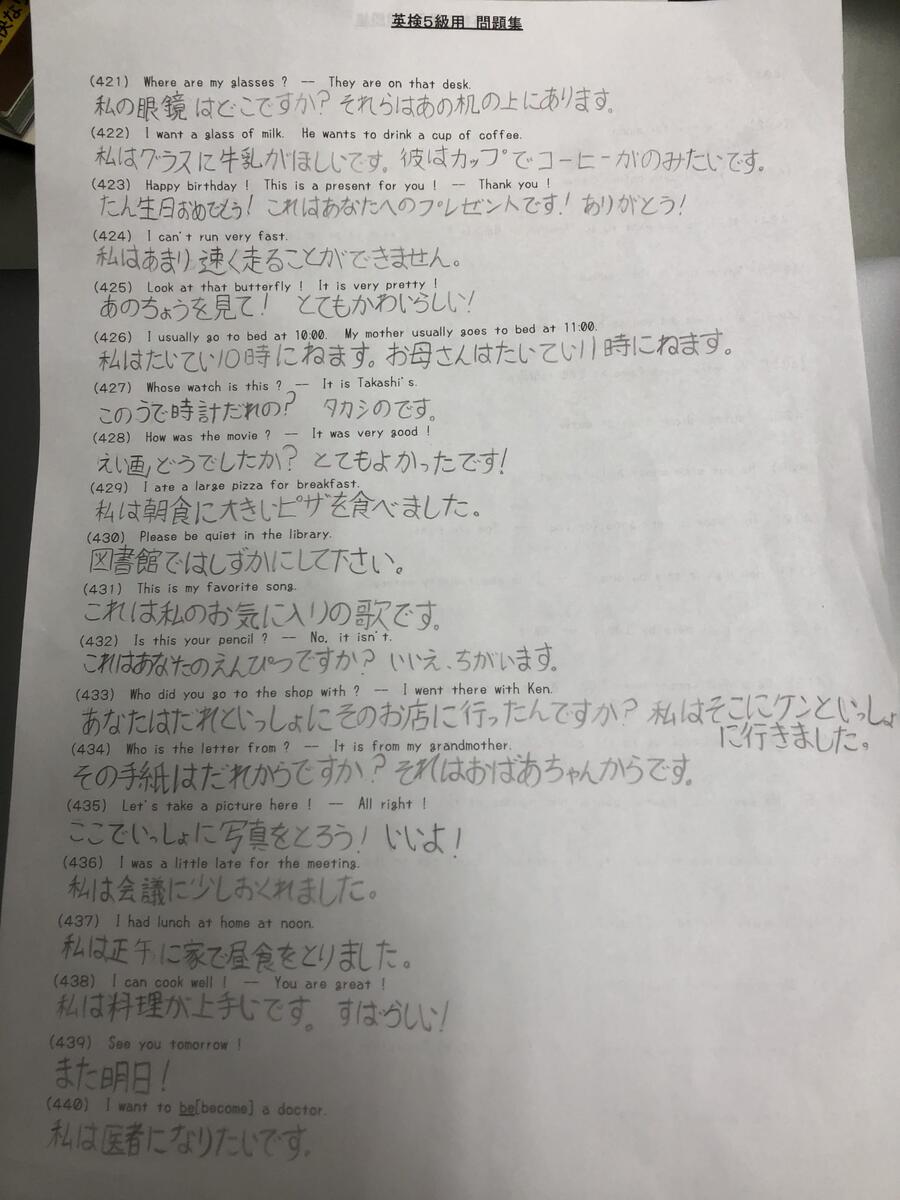 英検5級用 問題集
(421) Where are my glasses ? -- They are on that desk.
私の眼鏡はどこですか? それらはあの机の上にあります。
(422) I want a glass of milk. He wants to drink a cup of coffee.
私はグラスに牛乳がほしいです。彼はカップでコーヒーがのみたいです。
(423) Happy birthday ! This is a present for you ! -- Thank you !
たん生日おめでもう! これはあなたへのプレゼントです! ありがとう!
(424) I can't run very fast.
私はあまり速く走ることができません。
(425) Look at that butterfly ! It is very pretty !
あのちょうを見て! とてもかわいらしい!
(426) I usually go to bed at 10:00. My mother usually goes to bed at 11:00.
私はたいてい10時にねます。お母さんはたいてい11時にねます。
(427) Whose watch is this ? -- It is Takashi's.
このうで時計だれの? タカシのです。
(428) How was the movie ? -- It was very good !
えい画どうでしたか? とてもよかったです!
(429) I ate a large pizza for breakfast.
私は朝食に大きいピザを食べました。
(430) Please be quiet in the library.
図書館ではしずかにして下さい。
(431) This is my favorite song.
これは私のお気に入りの歌です。
(432) Is this your pencil ? -- No, it isn't.
これはあなたのえんぴつですか? いいえ、ちがいます。
(433) Who did you go to the shop with ? -- I went there with Ken.
あなたはだれといっしょにそのお店に行ったんですか? 私はそこにケンといっしょ
に行きました。
(434) Who is the letter from ? -- It is from my grandmother.
その手紙はだれからですか? それはおばあちゃんからです。
(435) Let's take a picture here ! -- All right !
ここでいっしょに写真をとろう! いいよ!
(436) I was a little late for the meeting.
私は会議に少しおくれました。
(437) I had lunch at home at noon.
私は正午に家で昼食をとりました。
(438) I can cook well ! -- You are great !
私は料理が上手いです。すばらしい!
(439) See you tomorrow !
また明日!
(440) I want to be[become] a doctor.
私は医者になりたいです。